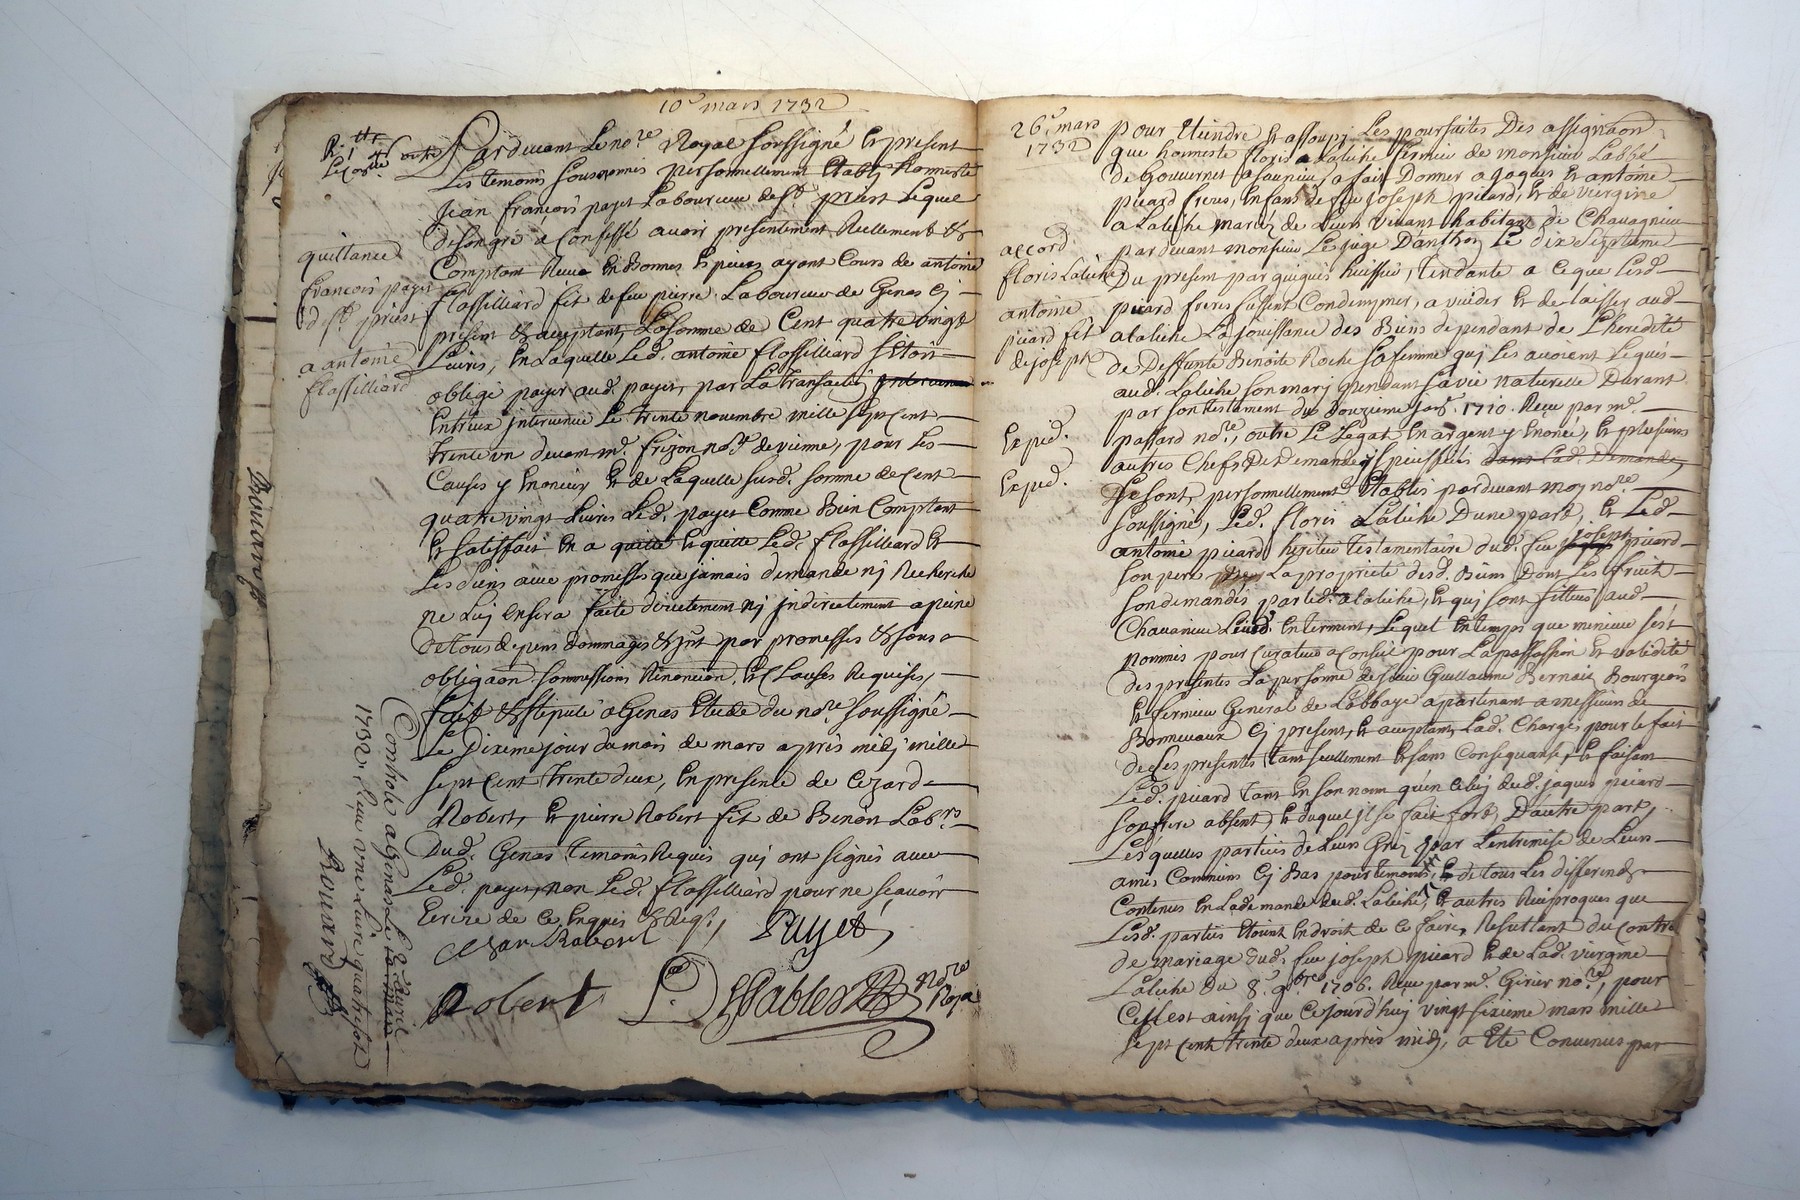 10e mars 1732
Pardevant Le nore Royal soussigné Et present
Les temoins sousnommés personnellement Etably honneste
Jean francois payet Laboureur de st priest Lequel
de son gré a Confessé avoir presentement Reellement &
Comptant Receu En Bonnes Especes ayant Cours de antoine
flassilliard fils de feu pierre Laboureur de Genas Cy
present & acceptant, La somme de Cent quatre vingt
Livres, En Laquelle Led. antoine flassilliard s'Etoit
obligé payer aud. payet, par La transaction
Entreux intervenue Le trente novembre mille sept cent
trente un devant mr. frizon nore de vienne, pour Les
Causes y Enoncées, Et de Laquelle susd. somme de Cent
quatre vingt Livres Led. payet Comme Bien Comptant
Et satisfait En a quitté Et quitte Led. flassilliard Et
Les siens avec promesses que jamais demande nj Recherche
ne Luj En sera faite directement nj indirectement a peine
de tous depens dommages & jnt par promesses & sous
obligaon. sommissions Renoncion. Et Clauses Requises,
fait & stipulé a Genas Etude du nore soussigné
Le dixieme jour du mois de mars apres midj mille
sept Cent trente deux, En presence de Cezard
Robert, Et pierre Robert fils de Benoit Labrs
Dud. Genas temoins Requis quj ont signés avec
Led. payet, non Led. flassilliard pour ne sçavoir
Ecrire de ce Enquis & Reqs,
Cesar Robert
Payet
Robert
nore Royal
quittance
francois payet
d st priest
a antoine
flassilliard
Controlé a Genas Le
1732. Reçu une Livre quatre sols
Bouard
26e mars
1732
pour Eteindre Et assoupir Les poursuites Des assignaon
que honneste floris a Laleche fermier de monsieur Labbé
de Gouvernet a faunieu a fait Donner a jaques Et antoine
picard freres, Enfans de feu joseph picard, Et de viergine
a Laleche mariés de Leurs vivant habitant de Chavagnieu
pardevant monsieur Le juge Danthon Le dix septieme
Du present par guigues huissier, tendante a Ceque Lesd.
picard freres fussent Condemnnés, a vuider Et delaisser aud.
alaleche La jouissance des Biens dependant de L'heredité
de Deffunte Benoite Roche sa femme quj Les avoient Legués
aud. Laleche son marj pendant sa vie naturelle Durant
par son testament du douzieme 1710. Reçu par mr.
passard nore, outre Le Legat En argent y Enoncé, Et plusieurs
autres Chefs
se sont, personnellement Etablis pardevant moy nore
soussigné, Led. floris a Laleche Dune part, Et Led.
antoine picard heritier testamentaire dud. feu joseph picard
son pere La proprieté desd. Biens Dont Les fruits
son demandés par Led. alaleche, Et quj sont scitués aud.
Chavanieu Et En terment, Lequel En temps que mineur s'est
nommés pour Curateur a Conseil pour La passassion Et validité
des presentes La personne de sieur Guillaume Bernair Bourgeois
Et fermier General de Labbaye apartenant a messieurs de
Bonnevaux Cj present, Et acceptant, Lad. Charge, pour le fait
de Ces presentes tant seullement Et sans Consequanse, Et faisant
Led. picard tant En son nom qu'en Celuj dud. jaques picard
son frere absent, Et duquel jl se fait fort, D'autre part,
Lesquelles parties de Leurs Grez par L'entremise de Leurs
amis Communs Cj Bas pour temoins, Et de tous Les differends
Contenus En La demande dud. Laleche, Et autres Reciproques que
Lesd. parties Etoient En droit de Ce faire, Resultant du Contrat
de mariage dud. feu joseph picard Et de Lad. viergine
Laleche du 8. 9bre 1706. Reçu par mr. Girier nore, pour
Ce est ainsj que Cejourd'huj vingt sixieme mars mille
sept Cent trente deux apres midj, a Eté Convenus par
accord
floris Laleche
antoine
picard fils
de joseph
Exped.
Exped.